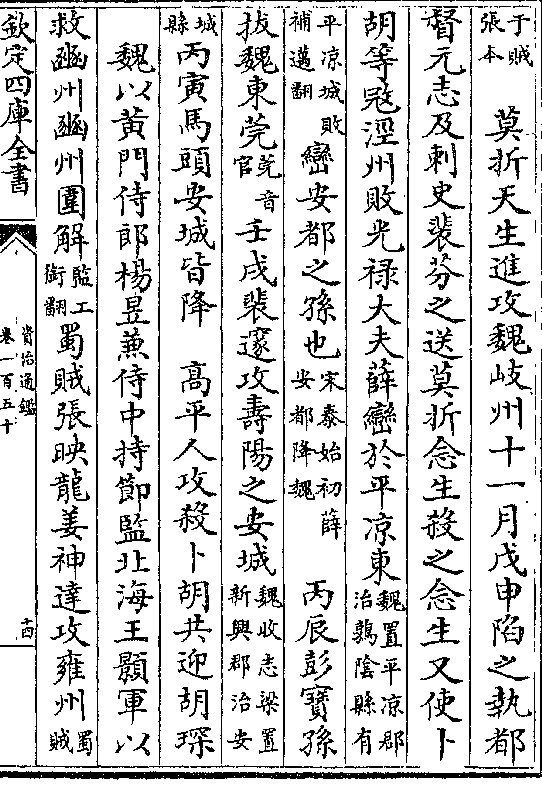 于賊張本 莫折天生進攻魏岐州十一月戊申陷之執都
督元志及刺史裴芬之送莫折念生殺之念生又使卜
胡等寇涇州敗光禄大夫薛巒於平凉東魏置平凉郡治鶉陰縣有
平凉城敗補邁翻巒安都之孫也宋泰始初薛安都降魏 丙辰彭寶孫
拔魏東莞莞音官壬戌裴邃攻壽陽之安城魏收志梁置新興郡治安
城縣丙寅馬頭安城皆降 高平人攻殺卜胡共迎胡琛
魏以黄門侍郎楊昱兼侍中持節監北海王顥軍以
救豳州豳州圍解監工衘翻蜀賊張映龍姜神達攻雍州蜀賊
欽定四庫全書
資治通鑑
卷一百五十
十四